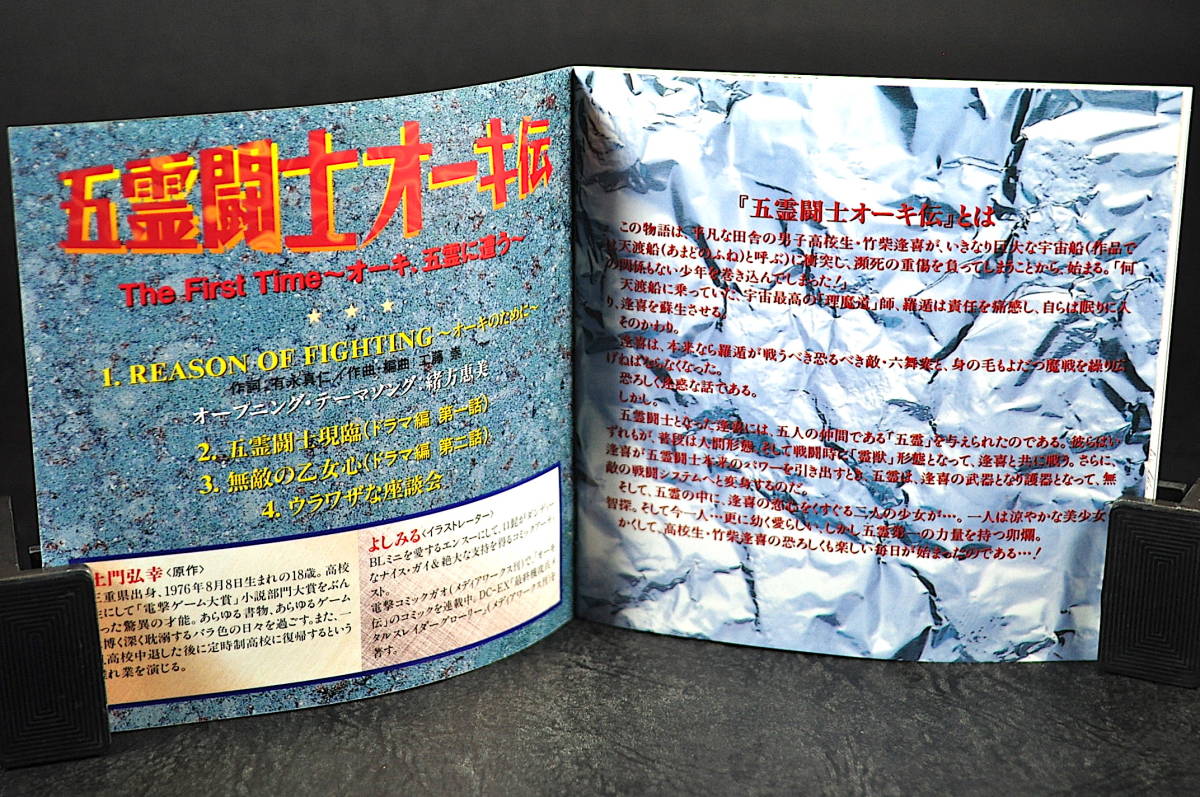 五霊闘士オーキ伝
The First Time〜オーキ、五霊に遭う〜
★ ★ ★
1. REASON OF FIGHTING〜オーキのために〜
作詞：有永真仁／作曲・編曲：工藤 崇
オープニング・テーマソング：緒方恵美
2. 五霊闘士現臨(ドラマ編 第一話)
3. 無敵の乙女心(ドラマ編 第二話)
4. ウラワザな座談会
土門弘幸〈原作〉
三重県出身、1976年8月8日生まれの18歳。高校
生にして「電撃ゲーム大賞」小説部門大賞をぶん
った驚異の才能。あらゆる書物、あらゆるゲーム
博く深く耽溺するバラ色の日々を過ごす。また、一
高校中退した後に定時制高校に復帰するという
れ業を演じる。
よしみる〈イラストレーター〉
BLミニを愛するエンスーにして、口髭がダンディー
なナイス・ガイ&絶大な支持を得るコミックアーティ
スト。
電撃コミックガオ(メディアワークス刊)で「オーキ
伝」のコミックを連載中。DC-EX「最終機攻兵メ
タルスレイダーグローリー」(メディアワークス刊)を
著す。
『五霊闘士オーキ伝』とは
この物語は、平凡な田舎の男子高校生・竹柴逢喜が、いきなり巨大な宇宙船(作品で
は天渡船(あまどのふね)と呼ぶ)に衝突し、瀕死の重傷を負ってしまうことから、始まる。「何
の関係もない少年を巻き込んでしまった!」
天渡船に乗っていた、宇宙最高の「理魔道」師、羅遁は責任を痛感し、自らは眠りに入
り、逢喜を蘇生させる。
そのかわり。
逢喜は、本来なら羅遁が戦うべき恐るべき敵・六舞衆と、身の毛もよだつ魔戦を繰り広
げねばならなくなった。
恐ろしく迷惑な話である。
しかし。
五霊闘士となった逢喜には、五人の仲間である「五霊」を与えられたのである。彼らはい
ずれもが、普段は人間形態、そして戦闘時に「霊獣」形態となって、逢喜と共に戦う。さらに、
逢喜が五霊闘士本来のパワーを引き出すとき、五霊は、逢喜の武器となり護器となって、無
敵の戦闘システムへと変身するのだ。
そして、五霊の中に、逢喜の恋心をくすぐる二人の少女が…。一人は涼やかな美少女
智探。そして今一人…更に幼く愛らしい、しかし五霊第一の力量を持つ卯爛。
かくして、高校生・竹柴逢喜の恐ろしくも楽しい毎日が始まったのである…!